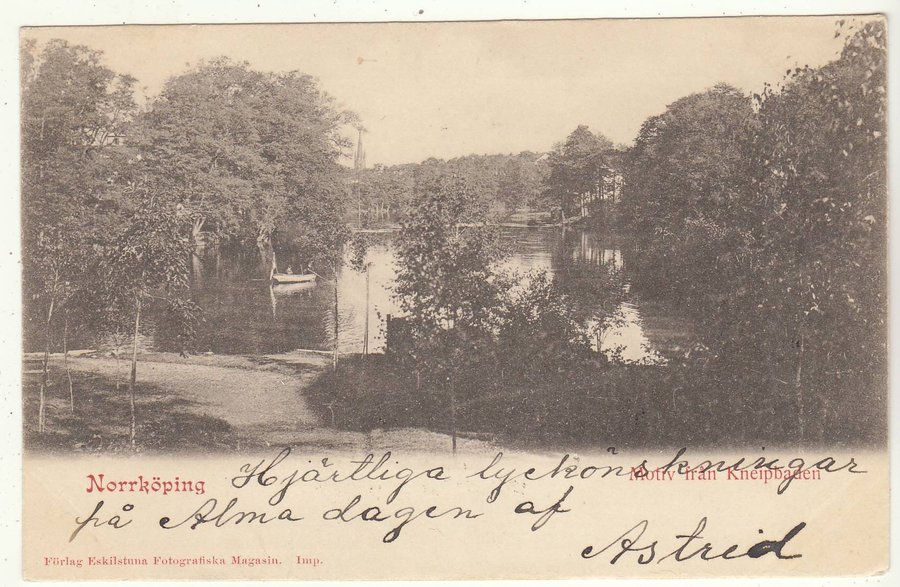 Norrköping
Motiv från Kneipbaden
Hjärtliga lyckönskningar
på Alma dagen af
Astrid
Förlag Eskilstuna Fotografiska Magasin. Imp.